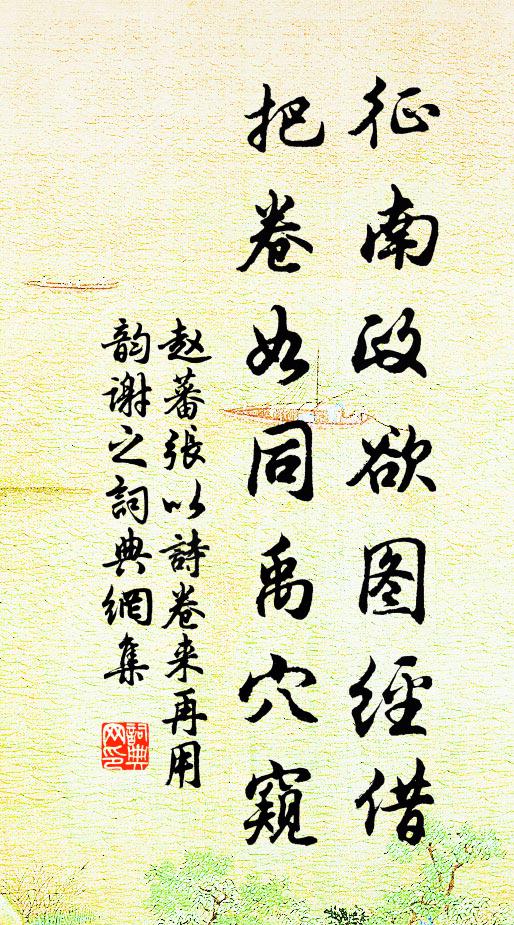 征南政欲图經借
把卷如同禹穴窺
赵蕃張以詩卷来再用
韵谢之詞典網集
詞典
网印